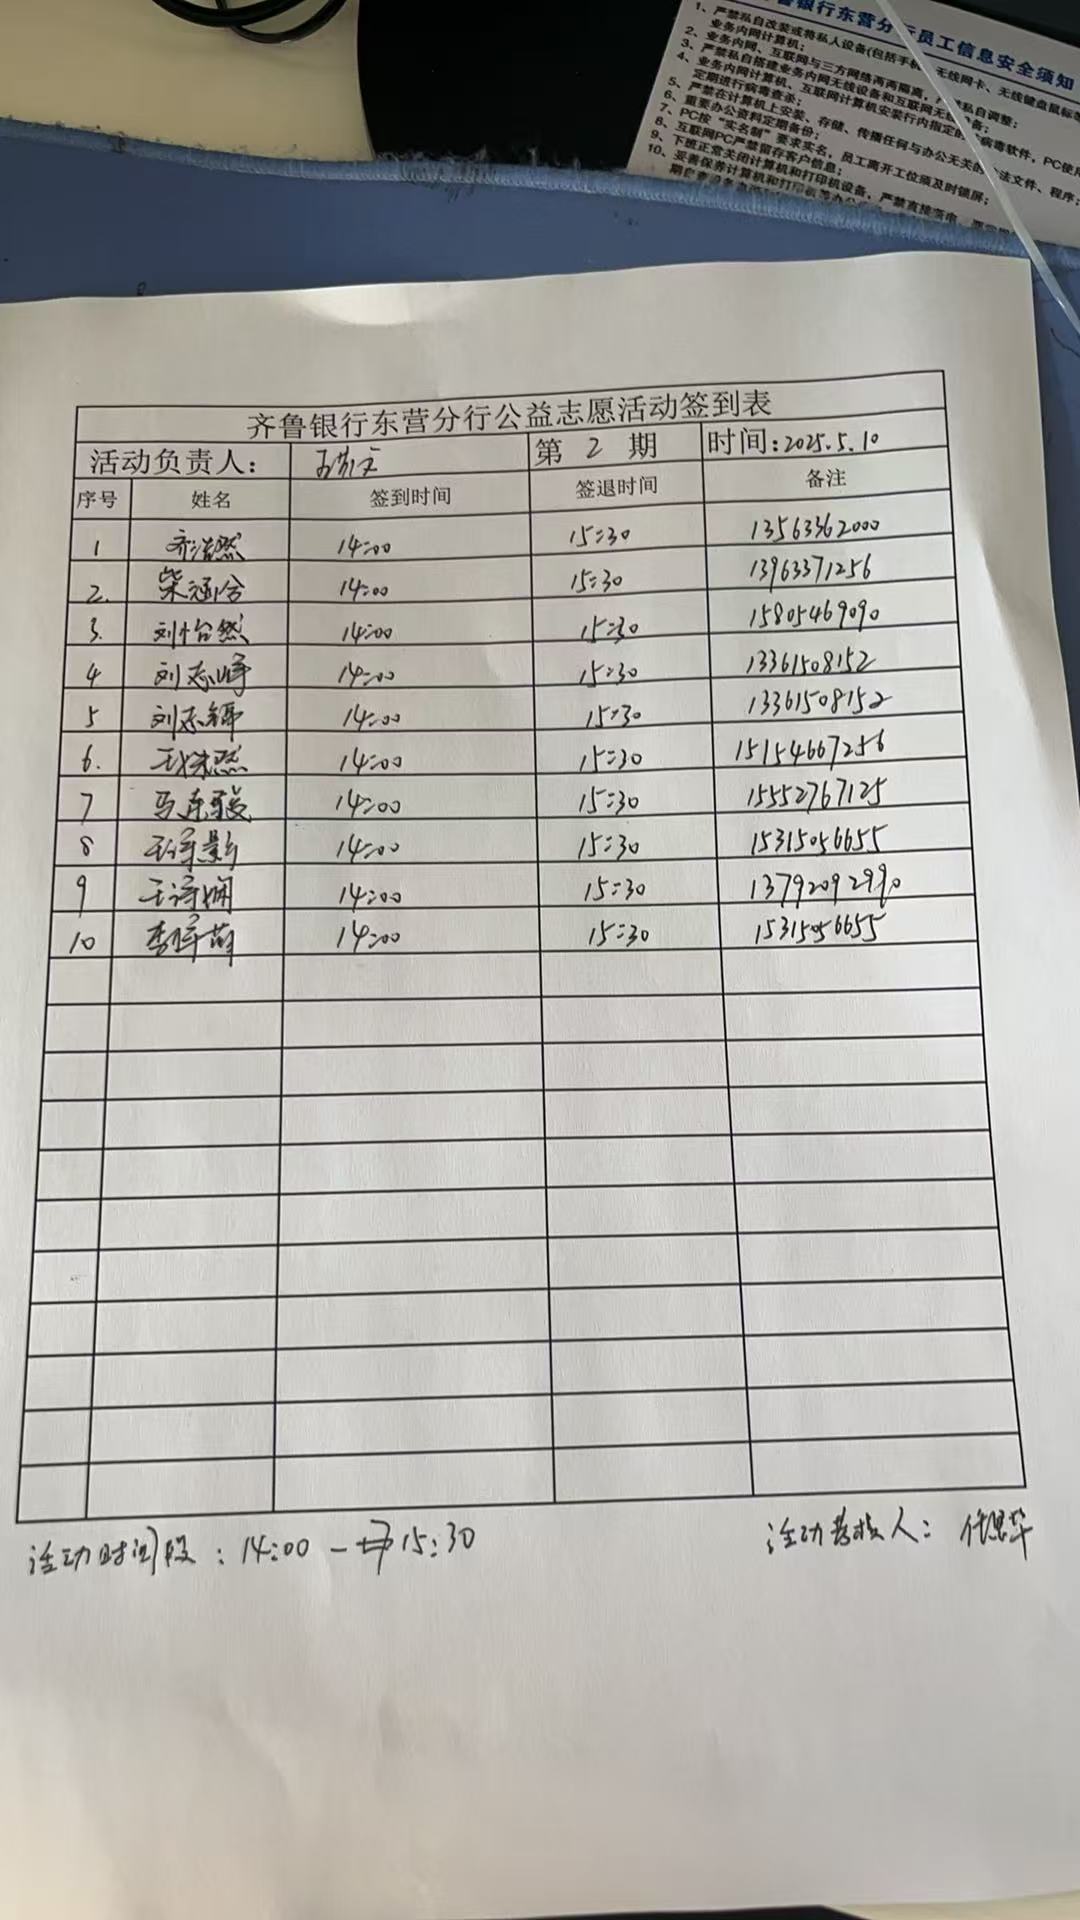 银行东营分行员工信息安全须知
1、严禁私自改装或将私人设备(包括手机、无线网卡、无线键盘鼠标等
业务内网计算机;
2、业务内网、互联网与三方网络两两隔离,私自调整;
3、严禁私自搭建业务内网无线设备和互联网无线设备;
4、业务内网计算机、互联网计算机安装行内指定的病毒软件,PC使用
定期进行病毒查杀;
5、严禁在计算机上安装、存储、传播任何与办公无关的法文件、程序;
6、重要办公资料定期备份;
7、PC按“实名制”要求实名,员工离开工位须及时锁屏;
8、互联网PC严禁留存客户信息;
9、下班正常关闭计算机和打印机设备,严禁直接断电
10、妥善保养计算机和打印机等办公
齐鲁银行东营分行公益志愿活动签到表
活动负责人: 第 2 期 时间:2025.5.10
序号 姓名 签到时间 签退时间 备注
1 齐浩然 14:00 15:30 13563362000
2. 柴涵兮 14:00 15:30 13963371256
3. 刘怡然 14:00 15:30 15805469090
4 刘志峰 14:00 15:30 13361508152
5 刘志锦 14:00 15:30 13361508152
6. 14:00 15:30 15154667256
7 马东骏 14:00 15:30 15552767125
8 14:00 15:30 15315056655
9 王诗娴 14:00 15:30 13792092990
10 14:00 15:30 15315056655
活动时间段:14:00—15:30 活动考核人: